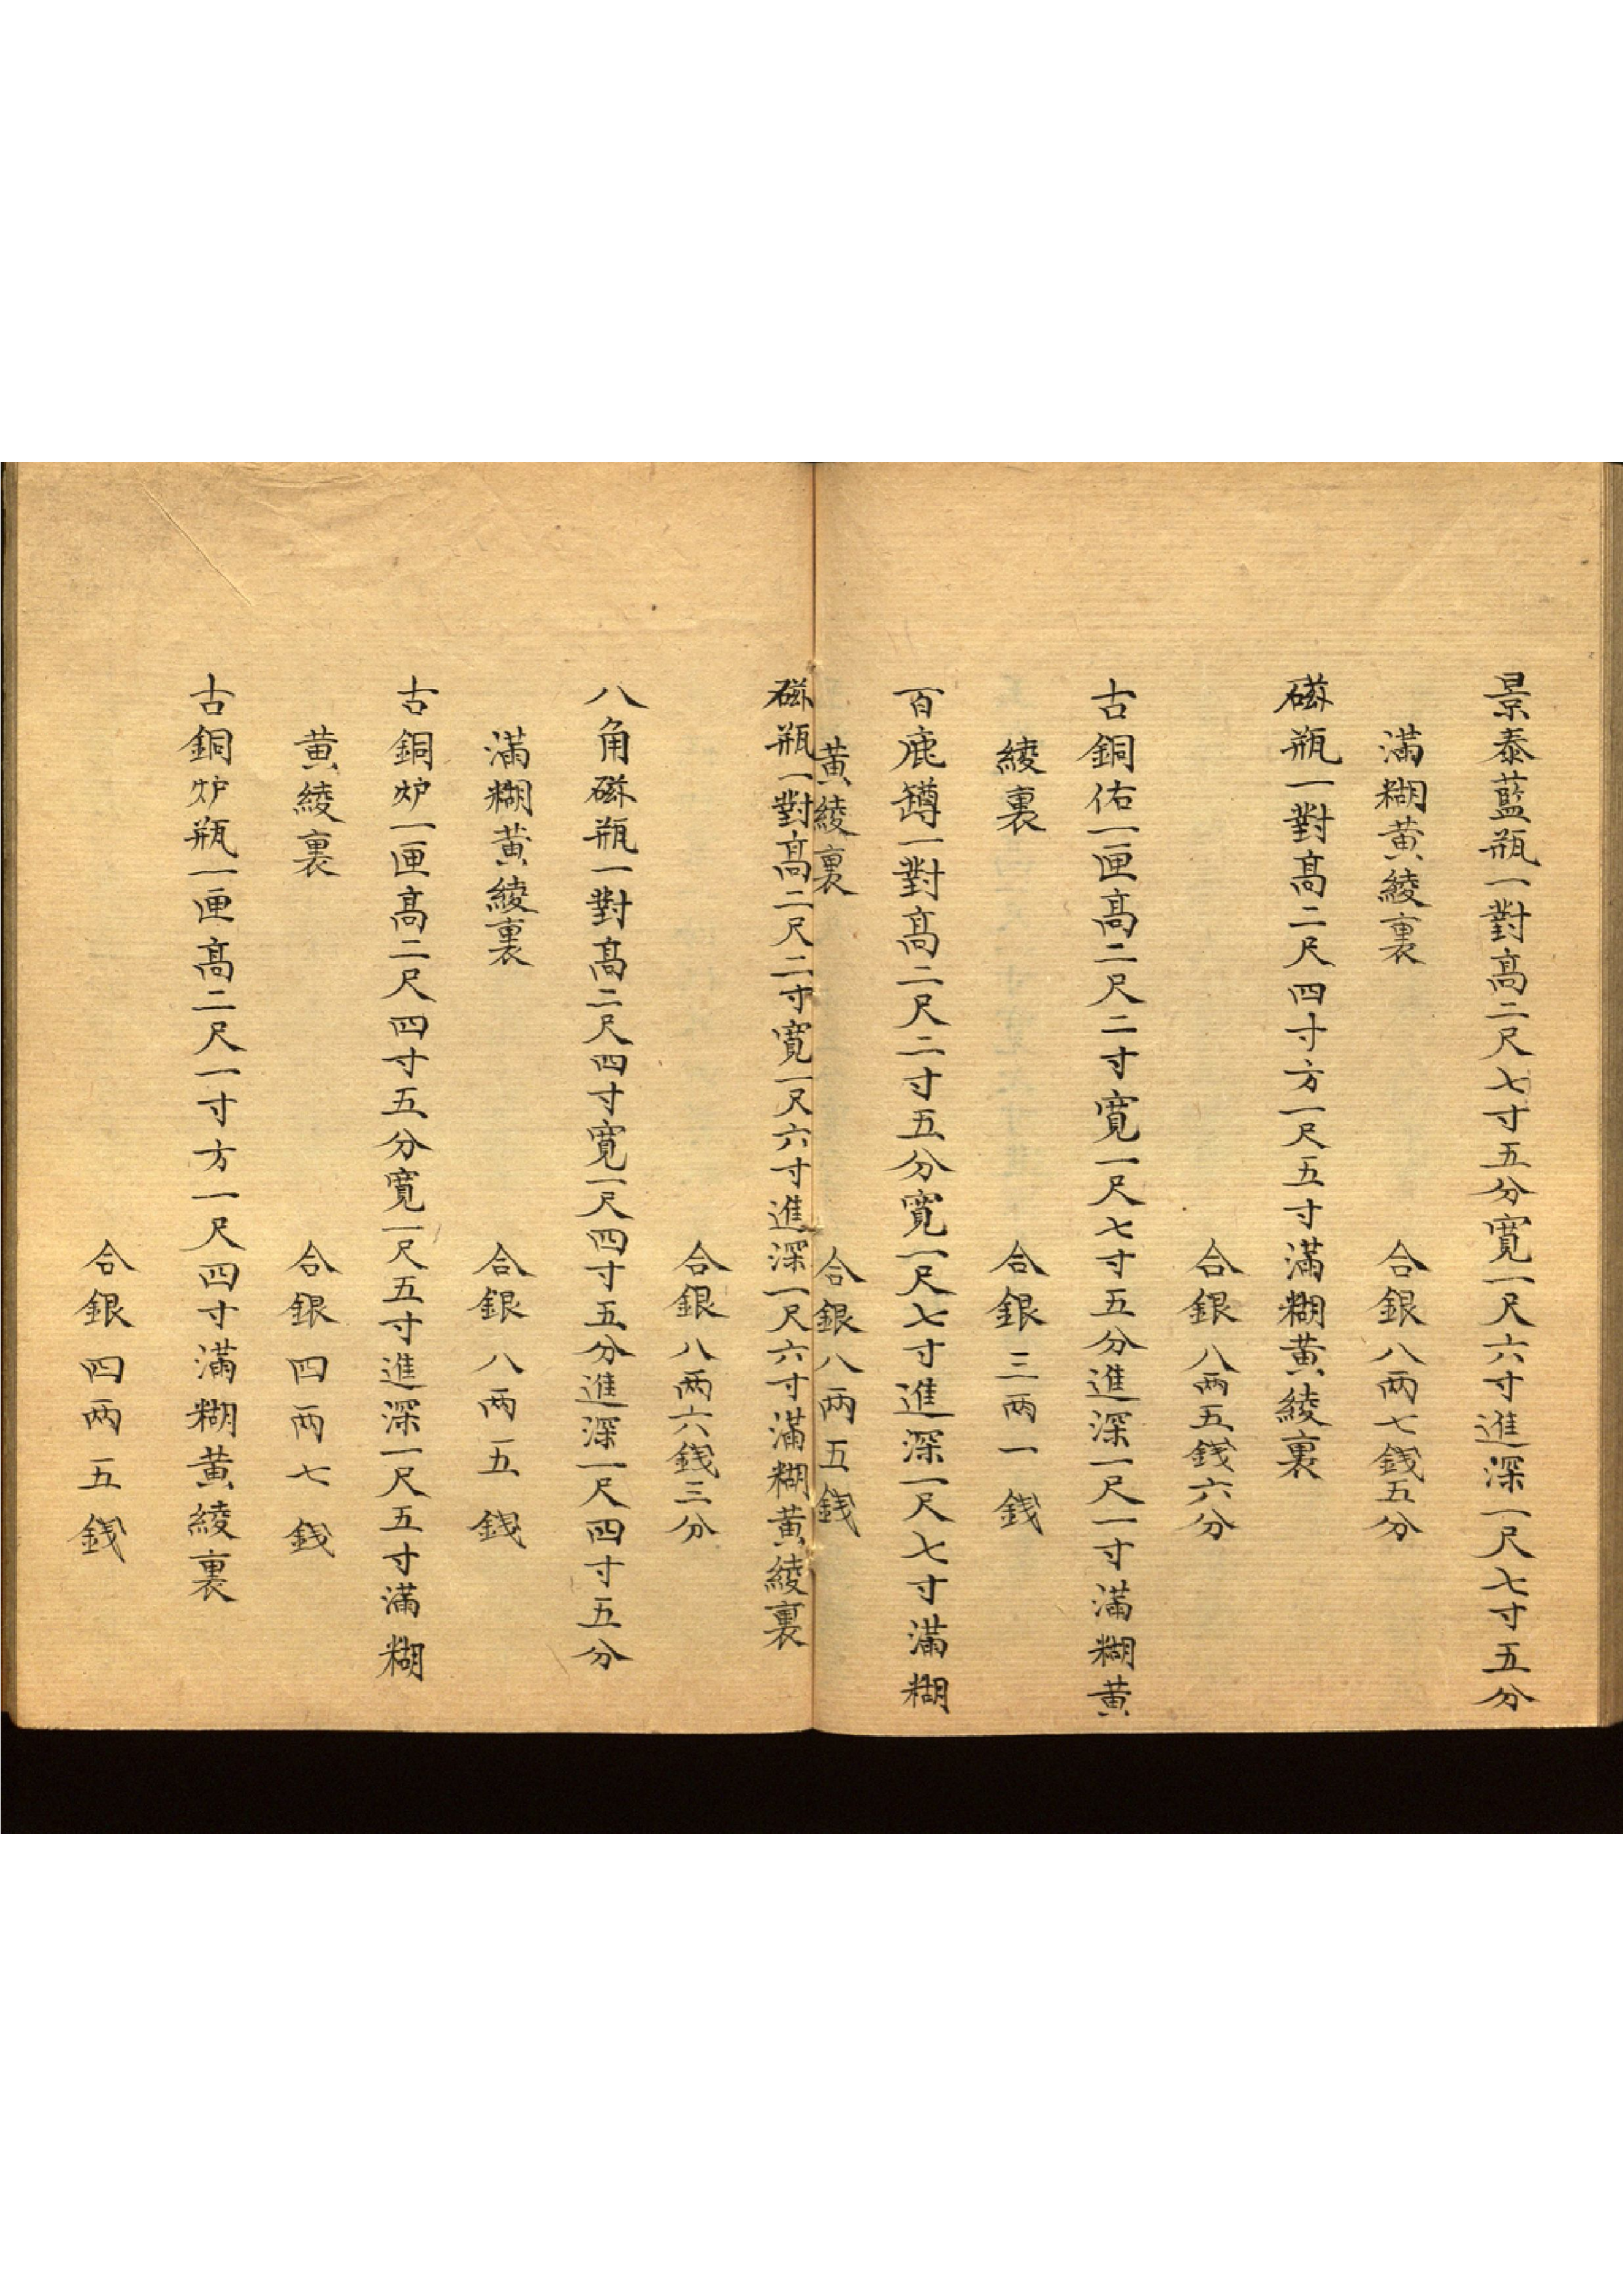 景泰藍瓶一對高二尺七寸五分寬一尺六寸進深一尺七寸五分
滿糊黄綾裏 合銀八两七錢五分
磁瓶一對高二尺四寸方一尺五寸滿糊黄綾裏
合銀八两五錢六分
古銅佑一匣高二尺二寸寬一尺七寸五分進深一尺一寸滿糊黄
綾裏 合銀三两一錢
百鹿罇一對高二尺二寸五分寬一尺七寸進深一尺七寸滿糊
黄綾裏 合銀八两五錢
磁瓶一對高二尺二寸寬一尺六寸進深一尺六寸滿糊黄綾裏
合銀八两六錢三分
八角磁瓶一對高二尺四寸寬一尺四寸五分進深一尺四寸五分
滿糊黄綾裏 合銀八两五錢
古銅炉一匣高二尺四寸五分寬一尺五寸進深一尺五寸滿糊
黄綾裏 合銀四两七錢
古銅炉瓶一匣高二尺一寸方一尺四寸滿糊黄綾裏
合銀四两五錢